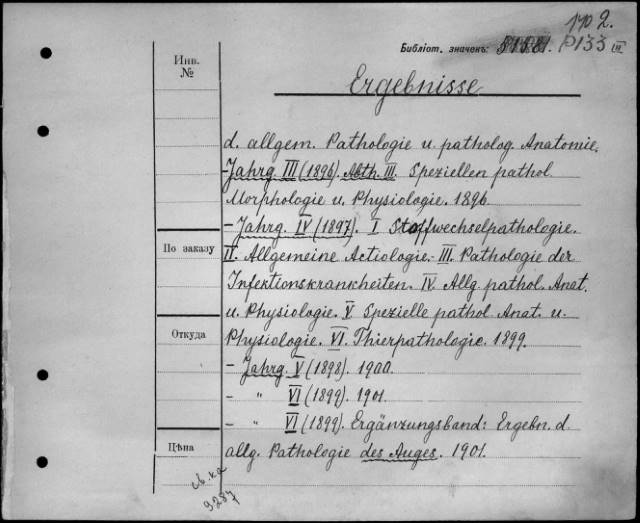 про 2.
Библіот. значенъ: P133 III
Инв.
№
Ergebnisse
d. allgem. Pathologie u. patholog. Anatomie.
- Jahrg. III (1896). Abth. III. Speziellen pathol.
Morphologie u. Physiologie. 1896.
- Jahrg. IV (1897). I Stoffwechselpathologie.
II. Allgemeine Aetiologie. - III. Pathologie der
По заказу
Infektionskrankheiten. IV. Allg. pathol. Anat.
u. Physiologie. V. Spezielle pathol. Anat. u.
Откуда
Physiologie. VI. Thierpathologie. 1899.
- Jahrg. V (1898). 1900.
- " VI (1899). 1901.
- " VI (1899). Ergänzungsband: Ergebn. d
Цѣна
allg. Pathologie des Auges. 1901.
св. ка
9284